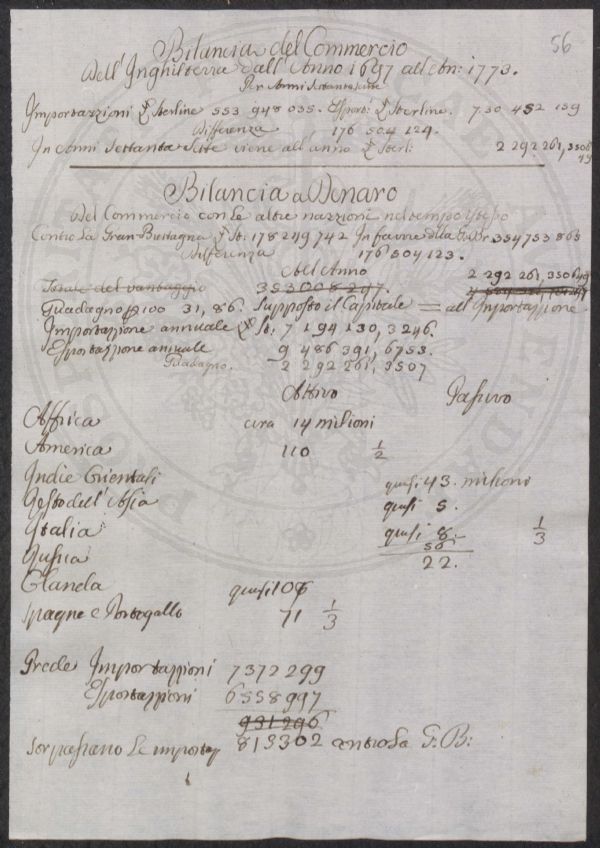 56
Bilancia del Commercio
Dell'Inghilterra dall'Anno 1697 all'An: 1773.
Per Anni Settantasette
Importazzioni £ Sterline 553 948 035. Esport: £ Sterline. 730 452 159
Differenza 176 504 124.
In Anni Settanta Sette viene all'anno £ Sterl: 2 292 261, 3506
Bilancia a Denaro
Del Commercio con le altre nazzioni nel tempo stesso
Contro la Gran-Brettagna £ St: 178 249 742 In favore della 354 753 865
Differenza 176 504 123.
All'Anno 2 292 261, 3506
Totale del vantaggio 353008247.
Guadagno 100 31, 86. Supposto il Capitale = all'Importazione
Importazione annuale St: 7 194 130, 3246.
Esportazione annuale 9 486 391, 6753.
Guadagno. 2 292 261, 3507
Attivo Passivo
Affrica circa 14 milioni
America 110 1/2
Indie Orientali quasi 43. milioni
Resto dell'Asia quasi 5.
Italia quasi 8. 1/3
Russia 22.
Olanda quasi 106
Spagna e Portogallo 71 1/3
Prede Importazzioni 7372299
Esportazzioni 6558997
931296
Sorpassano le importaz 813302 contro la G: B: